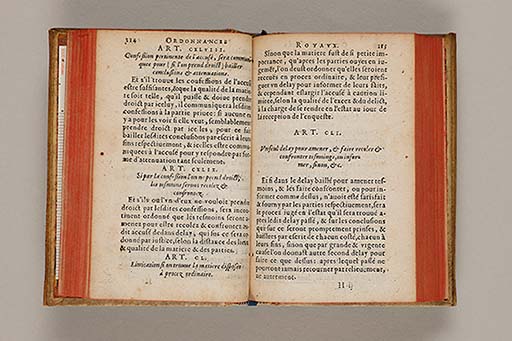 324 ORDONNANCES
ART. CXLVIII.
Confession pertinente de l'accusé, sera communi-
quee pour si l'on prend droict, bailler
conclusions & attenuations.
Et s'il trouue les confessions de l'accu-
sé estre suffisantes, & que la qualité de la matie-
re soit telle, qu'il puisse & doiue prendre
droict par icelle, il communiquera lesdites
confessions à la partie priuee: si aucune en
y a pour les voir si elle veut, semblablement
prendre droict par icelles, pour ce fait
bailler lesdites conclusions par escrit à leurs
fins respectiuement, & icelles estre commu-
niquees à l'accusé pour y respondre par for-
me d'attenuation tant seulement.
ART. CXLIX.
Si par la confession l'on ne prend droict,
les tesmoins seront recolez &
confrontez.
Et s'ils ou l'vn d'eux ne vouloit prendre
droict par lesdites confessions, sera incon-
tinent ordonné que les tesmoins seront a-
menez pour estre recolez & confrontez au-
dit accusé dedans delay, qui sur ce sera or-
donné par iustice, selon la distance des lieux
& qualité de la matiere & des parties.
ART. CL.
Limitation si on trouue la matiere disposee
à procez ordinaire.
ROYAVX. 325
Sinon que la matiere fust de si petite im-
portance, qu'apres les parties ouyes en iu-
gemẽt, l'on deust ordonner qu'elles seroient
receuës en procez ordinaire, & leur prefi-
guer vn delay pour informer de leurs faits,
& cependant eslargir l'accusé à caution li-
mitee, selon la qualité de l'excez & du delict,
à la charge de se rendre en l'estat au iour de
la reception de l'enqueste.
ART. CLI.
Vn seul delay pour amener, & faire recoler &
confronter tesmoings, ou infor-
mer, sinon, &c.
Et si dans le delay baillé pour amener tes-
moins, & les faire confronter, ou pour in-
former comme dessus, n'auoit esté satisfait
& fourny par les parties respectiuement, sera
le procez iugé en l'estat qu'il sera trouué a-
pres ledit delay passé, & sur les conclusions
qui sur ce seront promptement prinses, &
baillees par escrit de chacun costé, chacun à
leurs fins, sinon que par grande & vrgente
cause l'on donnast autre second delay pour
faire ce que dessus: apres lequel passé ne
pourront iamais recouurer particulierement,
ne autrement.
H ij